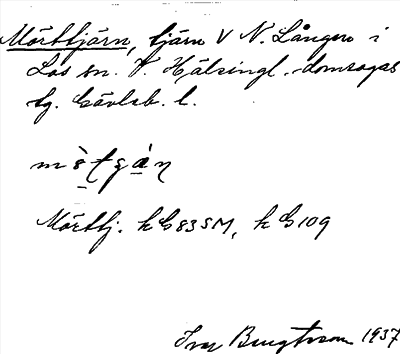 Mörttjärn, tjärn V N. Lången i
Los sn. V. Hälsingl. domsagas
tg. Gävleb. l.
Mörttj. k G 83 SM, k G 109
Ivar Bengtsson 1937